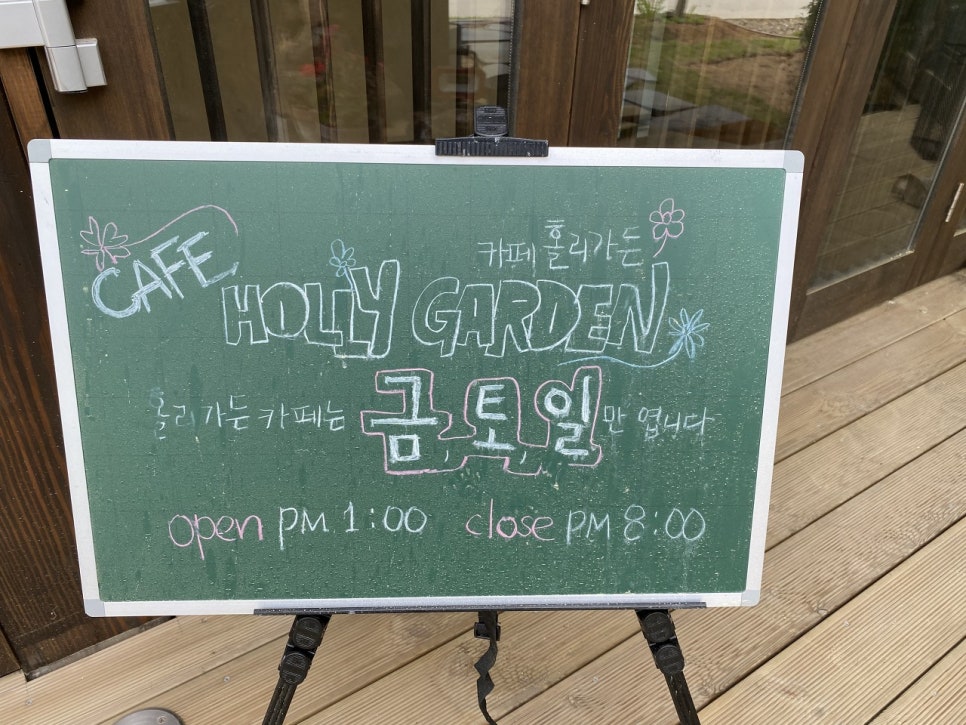 CAFE
카페 홀리가든
HOLLY GARDEN
홀리가든 카페는 금, 토, 일만 엽니다
open PM 1:00 close PM 8:00